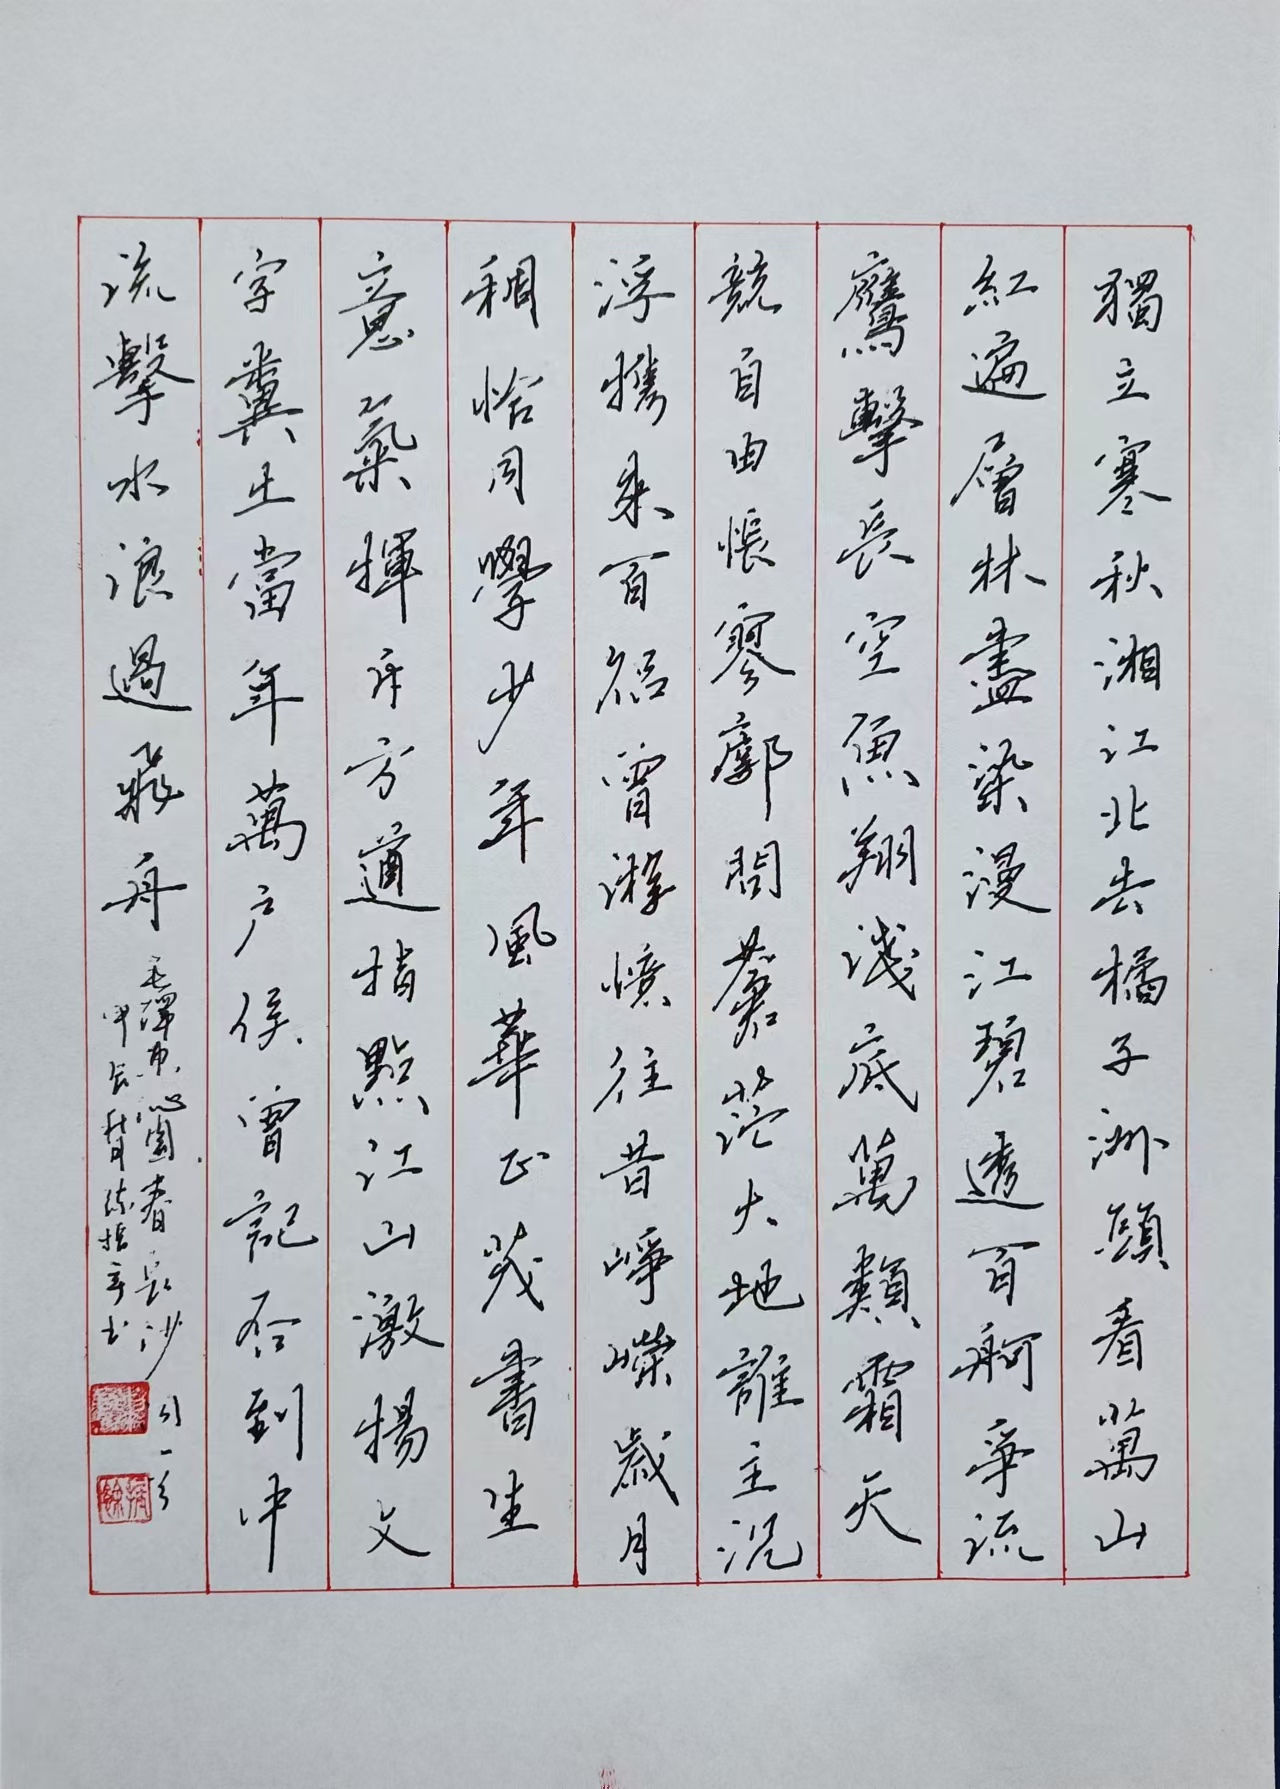 獨立寒秋湘江北去橘子洲頭看萬山
紅遍層林盡染漫江碧透百舸爭流
鷹擊長空魚翔淺底萬類霜天
競自由悵寥廓問蒼茫大地誰主沉
浮携來百侣曾游憶往昔崢嶸歲月
稠恰同學少年風華正茂書生
意氣揮斥方遒指點江山激揚文
字糞土當年萬户侯曾記否到中
流擊水浪遏飛舟
毛澤東沁園春長沙
甲辰